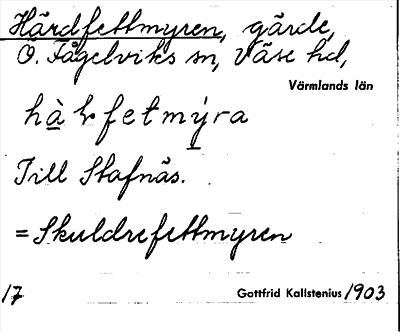 Hårdfettmyren, gärde,
Ö. Fågelviks sn, Väse hd,
Värmlands län
Till Stafnäs.
= Skuldrefettmyren
17
Gottfrid Kallstenius 1903